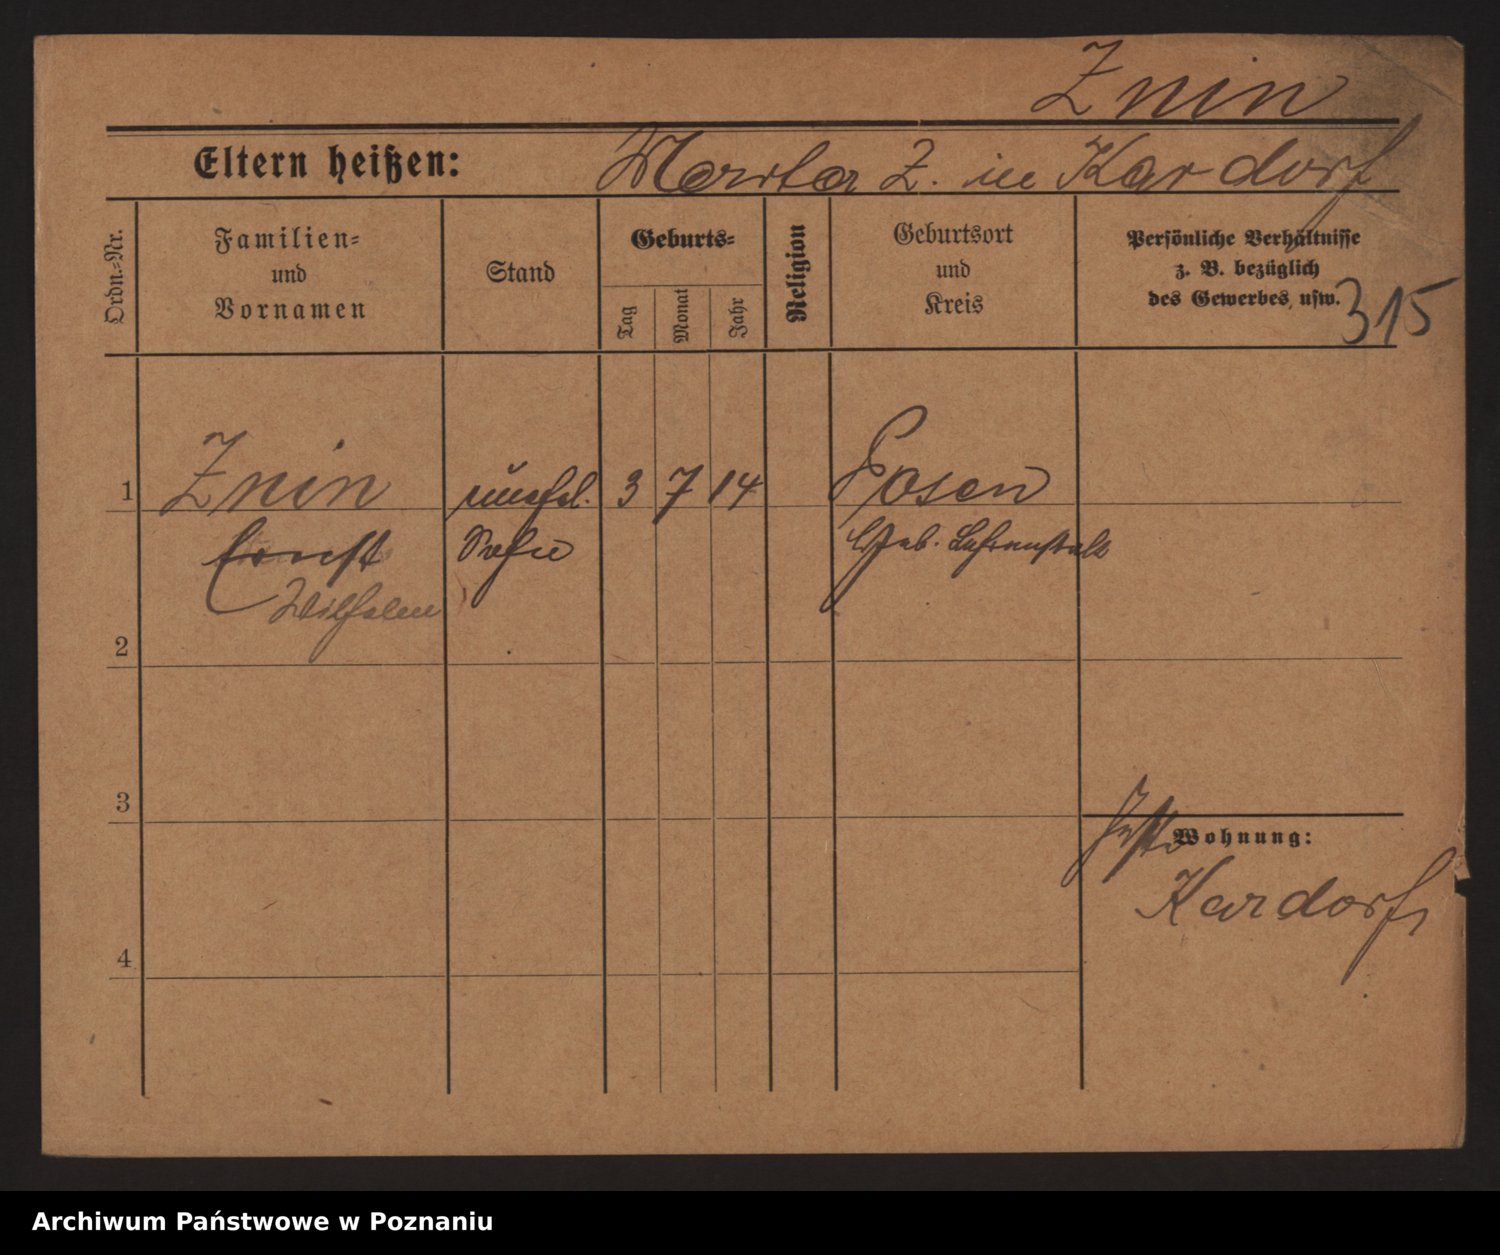 Znin
Eltern heißen: Martha Z. in Kardorf
Ordn.-Nr.
Familien-
und
Vornamen
Stand
Geburts-
Tag
Monat
Jahr
Religion
Geburtsort
und
Kreis
Persönliche Verhältnisse
z. B. bezüglich
des Gewerbes, usw.
315
1 Znin unehel. 3 7 14 Posen
Ernst Sohn Geb. Lehranstalt
Wilhelm
2
3
Wohnung:
Kardorf
4
Archiwum Państwowe w Poznaniu